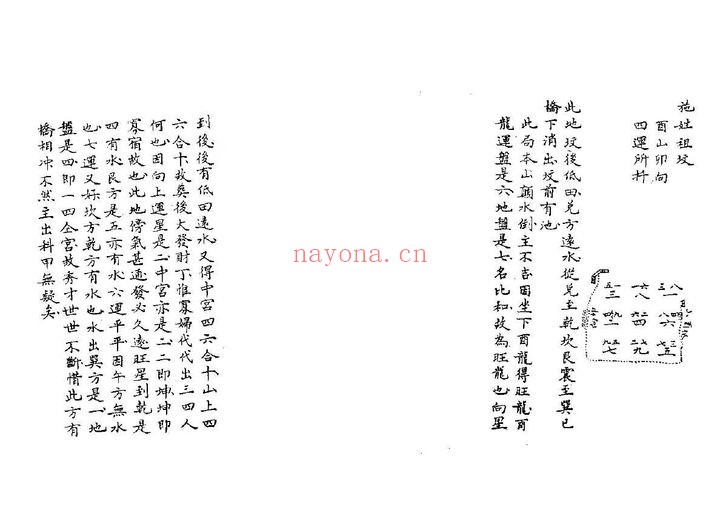 施姓祖坟
酉山卯向
四運所扦
此地坟後低田兌方遠水從兌至乾坎艮震至巽已
橋下消出坟前有池
此局本山顛水倒主不吉因坐下酉龍得旺龍酉
龍運盤是六地盤是七名比和故為旺龍也向星
到後後有低田遠水又得中宮四六合十山上四
六合十故葬後大發財丁惟寡婦代代出三四人
何也因向上運星是二中宮亦是二二即坤坤即
寡宿故也此地傍氣甚通發必久遠旺星到乾是
四有水艮方是五亦有水六運平平因午方無水
也七運又好坎方乾方有水也水出巽方是一地
盤是四即一四仝宮故秀才世世不斷惜此方有
橋相冲不然主出科甲無疑矣
nayona.cn